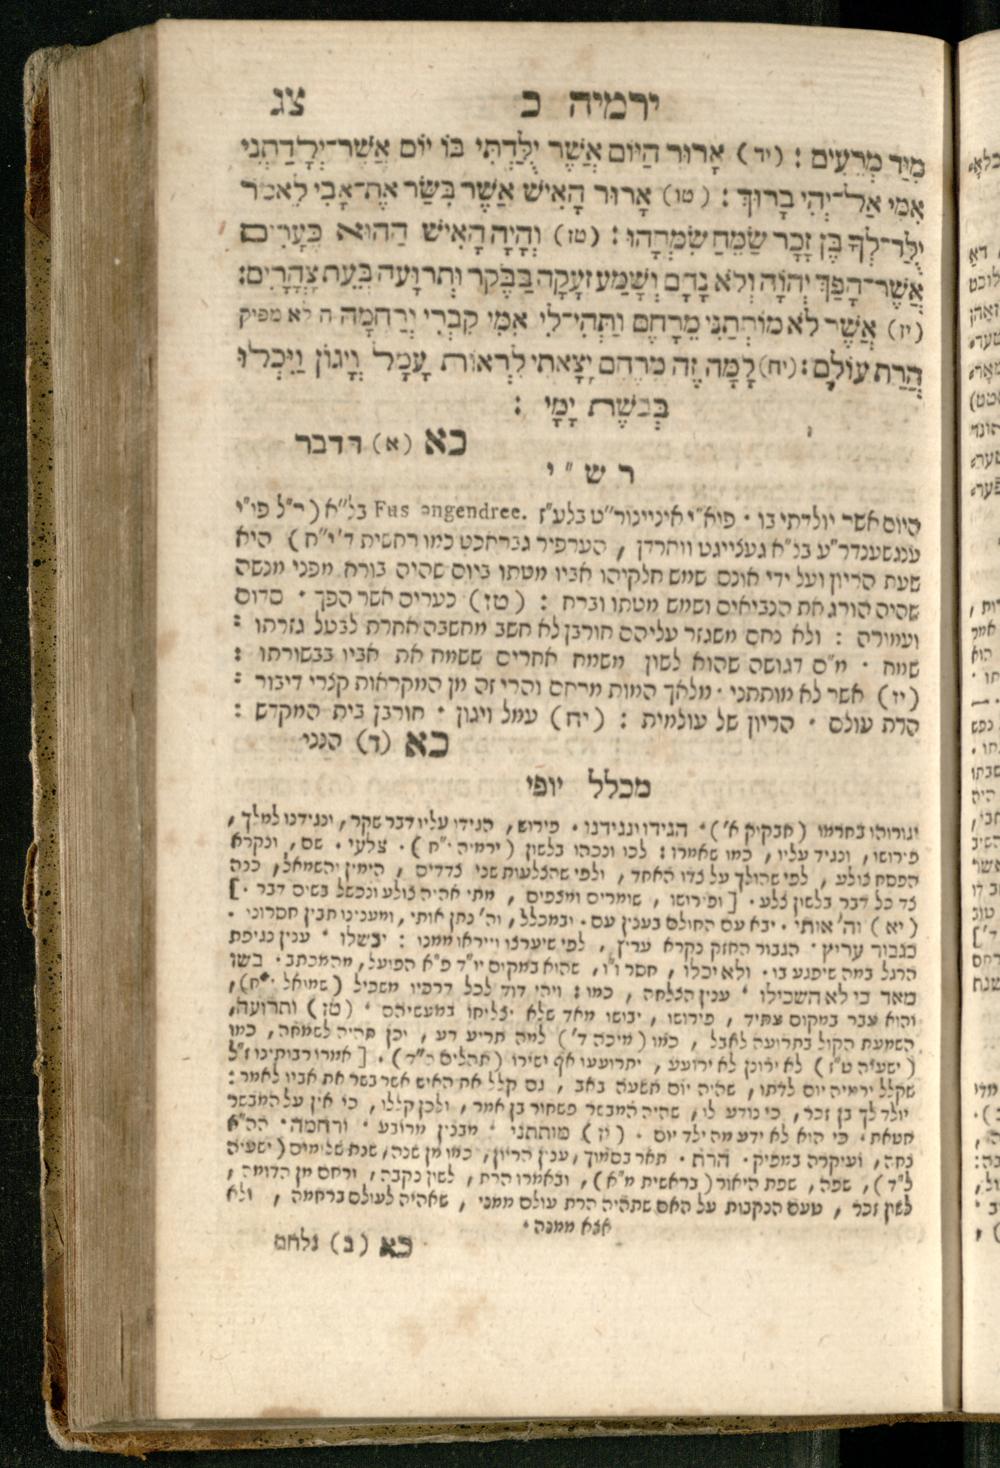 ירמיה כ צג
מִיַּד מְרֵעִים : (יד) אָרוּר הַיּוֹם אֲשֶׁר יֻלַּדְתִּי בּוֹ יוֹם אֲשֶׁר־יְלָדַתְנִי
אִמִּי אַל־יְהִי בָרוּךְ : (טו) אָרוּר הָאִישׁ אֲשֶׁר בִּשַּׂר אֶת־אָבִי לֵאמֹר
יֻלַּד־לְךָ בֵּן זָכָר שַׂמֵּחַ שִׂמְּחָהוּ : (טז) וְהָיָה הָאִישׁ הַהוּא כֶּעָרִים
אֲשֶׁר־הָפַךְ יְהוָֹה וְלֹא נִחָם וְשָׁמַע זְעָקָה בַּבֹּקֶר וּתְרוּעָה בְּעֵת צָהֳרָיִם:
(יז) אֲשֶׁר לֹא מוֹתְתַנִי מֵרָחֶם וַתְּהִי־לִי אִמִּי קִבְרִי וְרַחְמָה ה לא מפיק
הֲרַת עוֹלָם : (יח) לָמָּה זֶּה מֵרֶחֶם יָצָאתִי לִרְאוֹת עָמָל וְיָגוֹן וַיִּכְלוּ
בְּבֹשֶׁת יָמָי :
כא (א) הדבר
ר ש " י
היום אשר יולדתי בו · פוא"י איניינור"ט בלע"ז Fus engendree. בל"א (ר"ל פו"י
ענגשענדר"ע בל"א געצייגט ווארדן , הערפיר געבראכט כמו ראשית ד' י"ח) היא
שעת הריון ועל ידי אונס שמש חלקיהו אביו מטתו ביום שהיה בורח מפני מנשה
שהיה הורג את הנביאים ושמש מטתו וברח : (טז) כערים אשר הפך · סדום
ועמורה : ולא נחם משגזר עליהם חורבן לא חשב מחשבה אחרת לבטל גזרתו :
שמח · מ"ם דגושה שהוא לשון משמח אחרים ששמח את אביו בבשורתו :
(יז) אשר לא מותתני · מלאך המות מרחם והרי זה מן המקראות קצרי דיבור :
הרת עולם · הריון של עולמית : (יח) עמל ויגון · חורבן בית המקדש :
כא (ד) הנני
מכלל יופי
יגורוהו בחרמו (חבקוק א')· הגידו ונגידנו · פירוש, הגידו עליו דבר שקר, ונגידנו למלך,
פירושו, ונגיד עליו, כמו שאמרו : לכו ונכהו בלשון (ירמיה י"ח) · צלעי · שם, ונקרא
הפסח צולע , לפי שהולך על צדו האחד , ולפי שהצלעות שני צדדים , הימין והשמאל, כנה
צד כל דבר בלשון צלע · [ ופירושו , שומרים ומצפים , מתי אהיה צולע ונכשל בשים דבר ·]
(יא) וה' אותי · יבא עם החולם בענין עם · ובמכלל, וה' נתן אותי, ומענינו תבין חסרוני ·
כגבור עריץ · הגבור החזק נקרא עריץ, לפי שיערצו וייראו ממנו : יכשלו · ענין נגיפת
הרגל במה שיפגע בו · ולא יכלו , חסר וי"ו, שהוא במקום יו"ד פ"א הפועל, מהמכתב · בשו
מאד כי לא השכילו · ענין הצלחה , כמו : ויהי דוד לכל דרכיו משכיל (שמואל י"ח),
והוא עבר במקום עתיד , פירושו , יבושו מאד שלא יצליחו במעשיהם · (טז) ותרועה,
השמעת הקול בתרועה לאבל , כמו (מיכה ד') למה תריע רע , יכן תהיה לשמחה, כמו
(ישעיה ט"ז) לא ירונן לא ירועע , יתרועעו אף ישירו (תהלים ס"ה) · [ אמרו רבותינו ז"ל
שקלל ירמיה יום לדתו, שהיה יום תשעה באב , גם קלל את האיש אשר בשר את אביו לאמר :
יולד לך בן זכר, כי נודע לו, שהיה המבשר פשחור בן אמר, ולכן קללו, כי אין על המבשר
חטאת · כי הוא לא ידע מה ילד יום · (יז) מותתני · מבנין מרובע · ורחמה · הה"א
נחה, ועיקרה במפיק · הרת · תאר בסמוך, ענין הריון, כמו מן שנה, שנת שלומים (ישעיה
ל"ד), שפה, שפת היאור (בראשית מ"א) , ובאמרו הרת , לשון נקבה , ורחם מן הדומה ,
לשון זכר , טעם הנקבות על האם שתהיה הרת עולם ממני , שאהיה לעולם ברחמה , ולא
אצא ממנה ·
כא (ב) נלחם